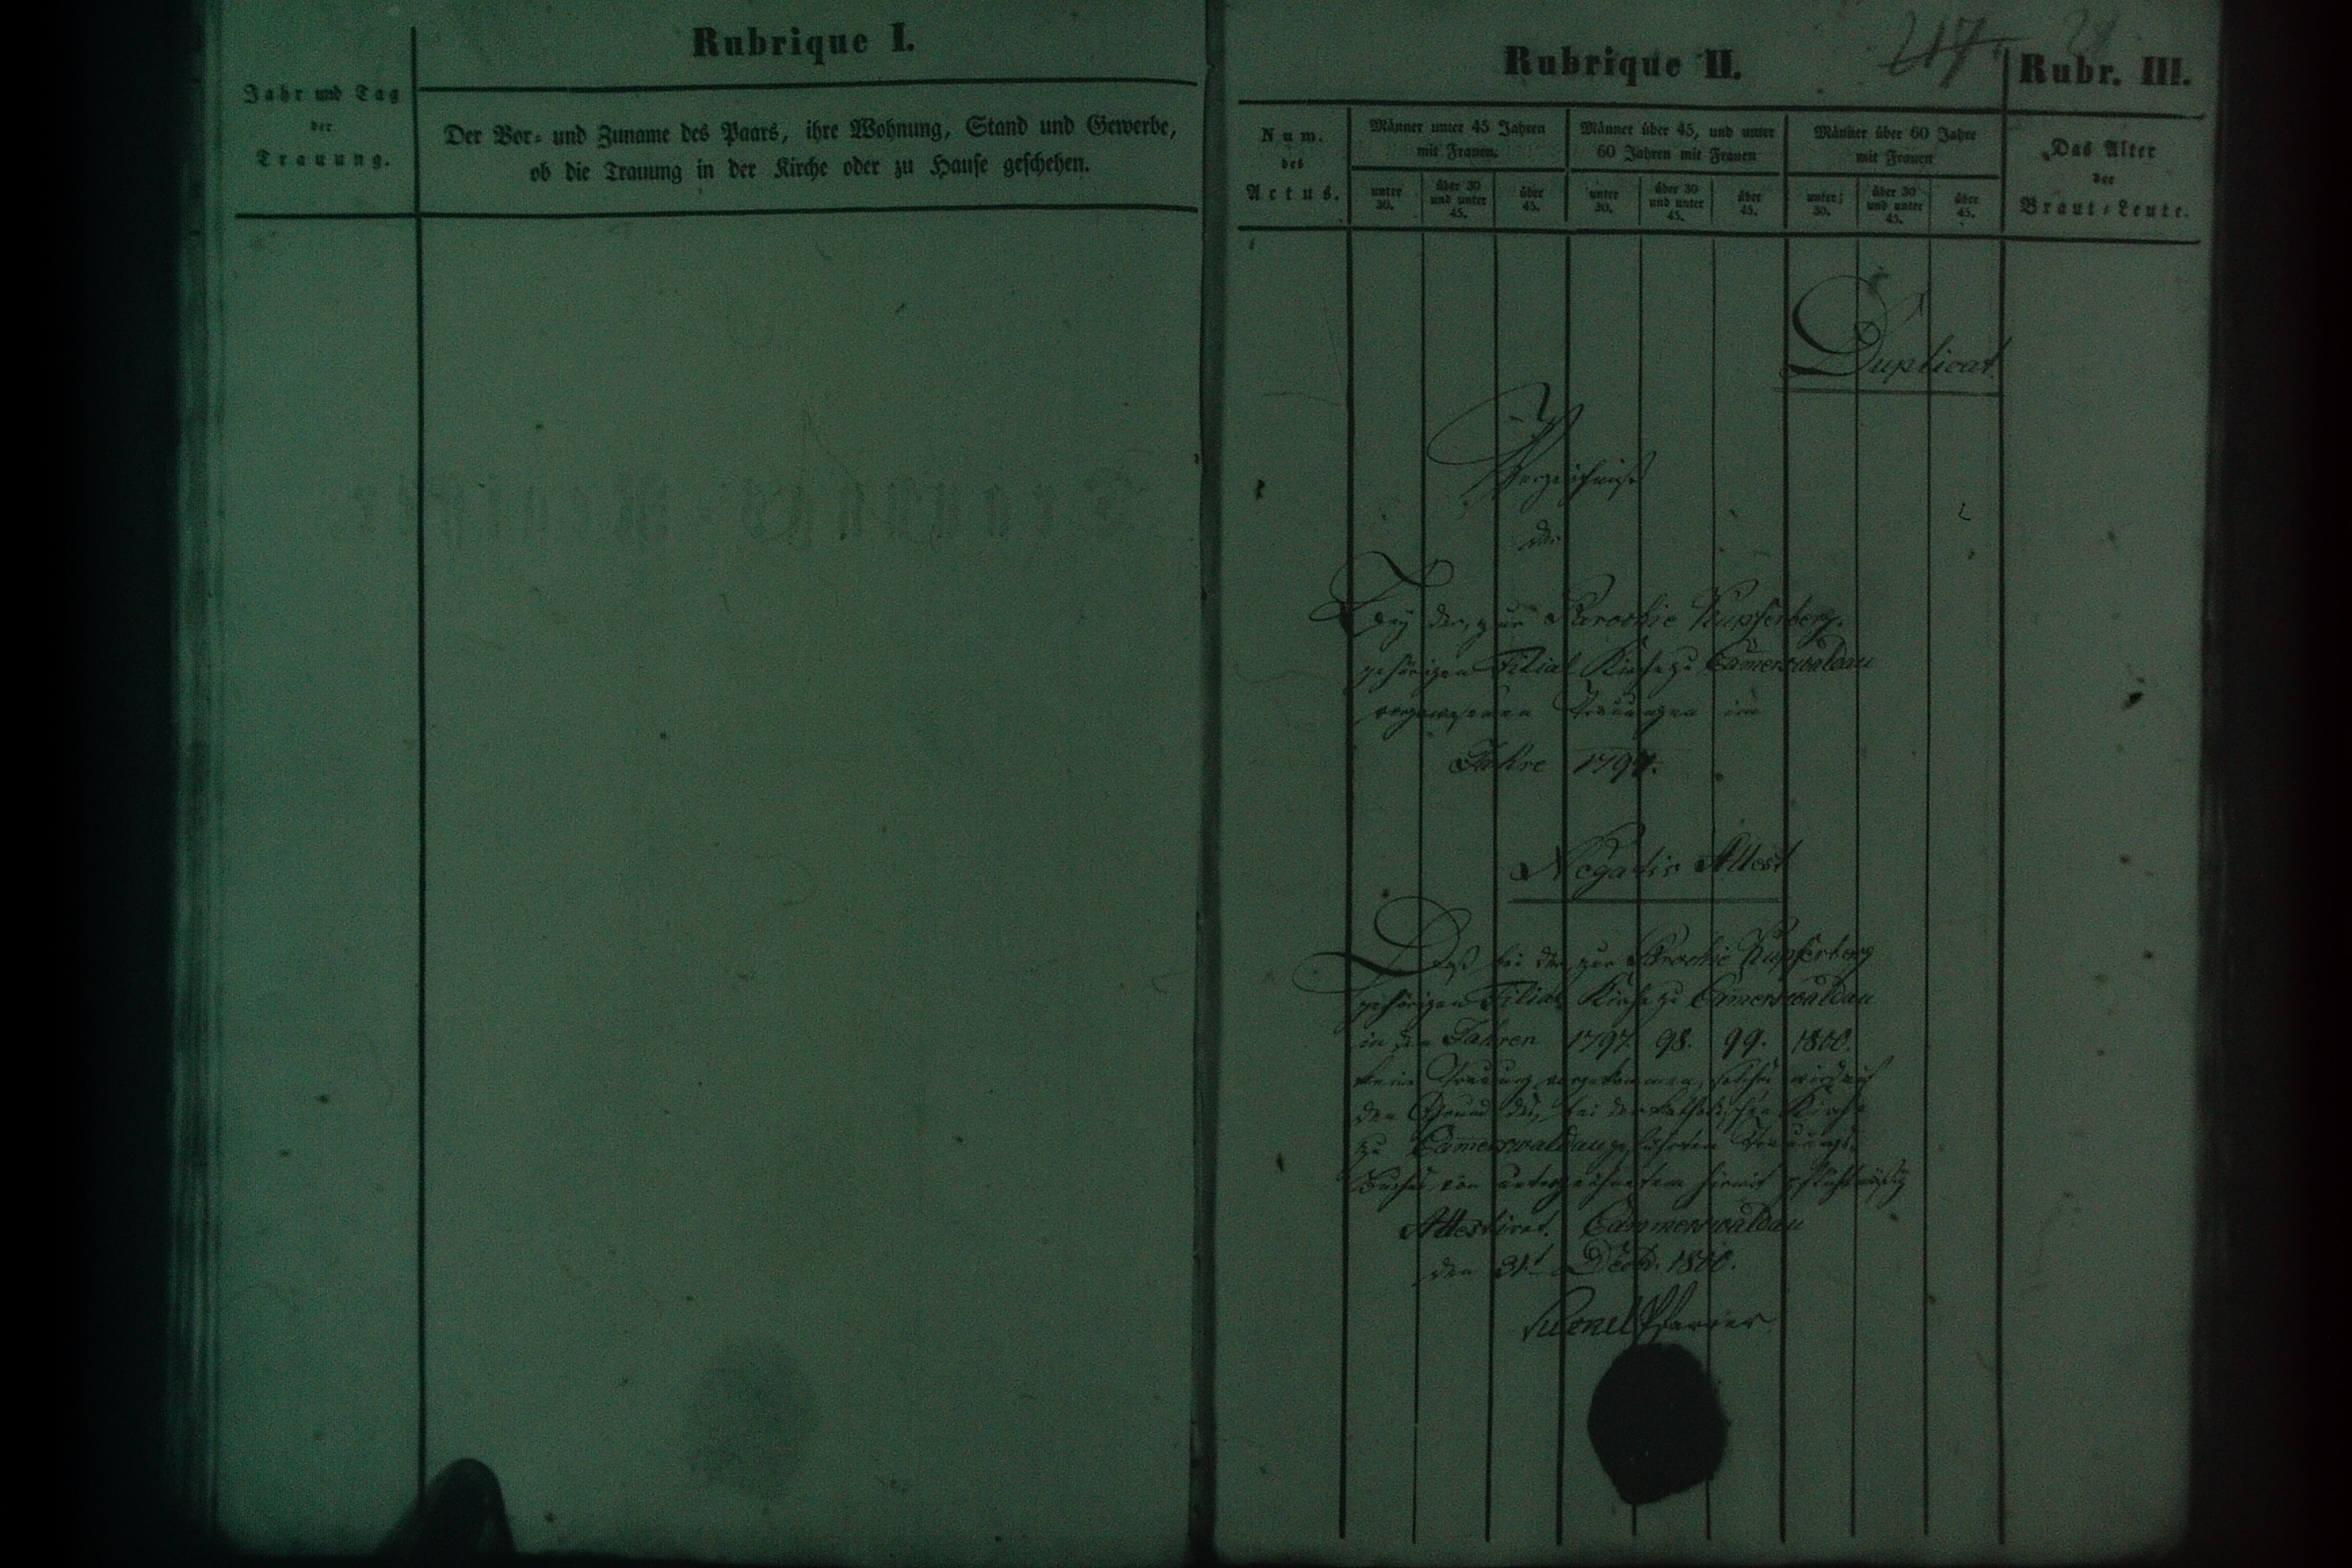 Rubrique I.
Jahr und Tag
der
Trauung.
Der Vor- und Zuname des Paars, ihre Wohnung, Stand und Gewerbe,
ob die Trauung in der Kirche oder zu Hause geschehen.
217.
28
Rubrique II.
Rubr. III.
Num.
des
Actus.
Männer unter 45 Jahren
mit Frauen.
Männer über 45, und unter
60 Jahren mit Frauen
Männer über 60 Jahre
mit Frauen
unter
30.
über 30
und unter
45.
über
45.
unter
30.
über 30
und unter
45.
über
45.
unter
30.
über 30
und unter
45.
über
45.
Das Alter
der
Braut-Leute.
Duplicat.
Verzeichniß
der
Bey der, zur Parochie Kupferberg.
gehörigen Filial Kirche zu Cam̄erswaldau
vorgewesenen Trauungen im
Jahre 1797.
Negativ Attest
Daß bei der zur Parochie Kupferberg
gehörigen Filial Kirche zu Cam̄erswaldau
in den Jahren 1797. 98. 99. 1800.
keine Trauung vorgekommen, solches wird auf
den Grund des, bei der katholischen Kirche
zu Cam̄erswaldau geführten Trauungs-
Buches von unterzeichnetem hiermit pflichtmäßig
Attestiret. Cammerswaldau
den 31t Decb. 1800.
Pfarrer